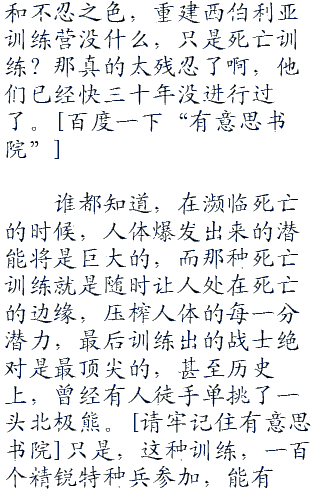 和不忍之色，重建西伯利亚
训练营没什么，只是死亡训
练？那真的太残忍了啊，他
们已经快三十年没进行过
了。[百度一下“有意思书
院”]
谁都知道，在濒临死亡
的时候，人体爆发出来的潜
能将是巨大的，而那种死亡
训练就是随时让人处在死亡
的边缘，压榨人体的每一分
潜力，最后训练出的战士绝
对是最顶尖的，甚至历史
上，曾经有人徒手单挑了一
头北极熊。[请牢记住有意思
书院]只是，这种训练，一百
个精锐特种兵参加，能有